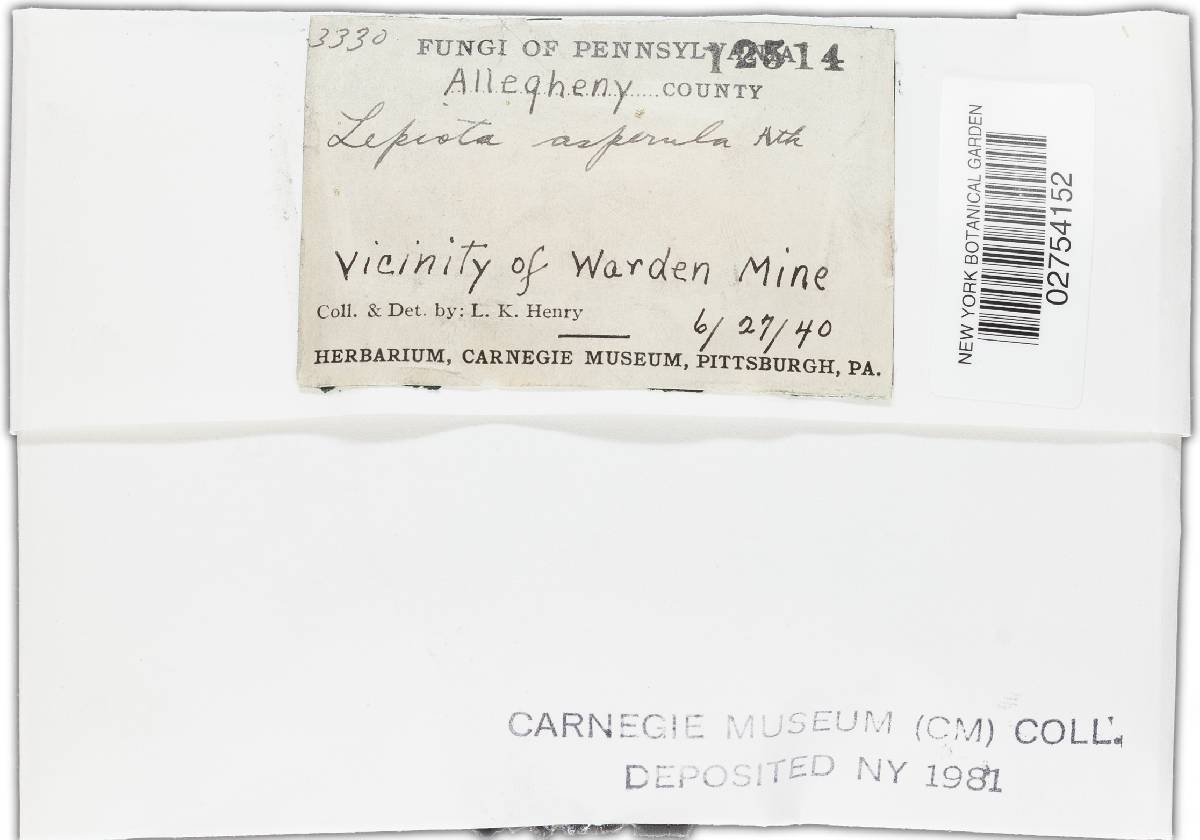 3330
FUNGI OF PENNSYLVANIA 12514
Allegheny COUNTY
Lepiota asperula Atk
Vicinity of Warden Mine
Coll. & Det. by: L. K. Henry
6/27/40
HERBARIUM, CARNEGIE MUSEUM, PITTSBURGH, PA.
NEW YORK BOTANICAL GARDEN
02754152
CARNEGIE MUSEUM (CM) COLL.
DEPOSITED NY 1981